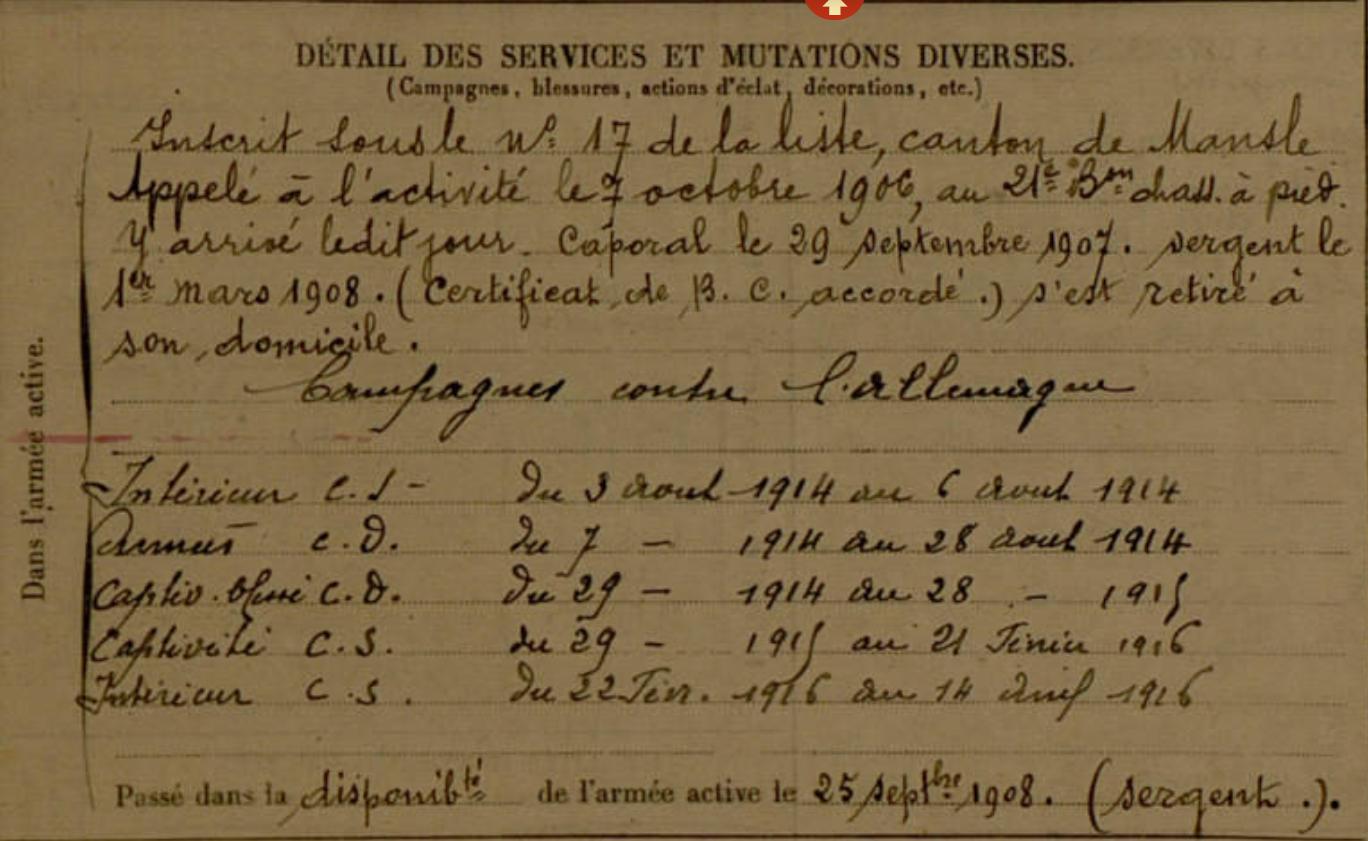 DÉTAIL DES SERVICES ET MUTATIONS DIVERSES.
(Campagnes, blessures, actions d'éclat, décorations, etc.)
Inscrit sous le N° 17 de la liste, canton de Mansle
Appelé à l'activité le 7 octobre 1906, au 21e Bon chass. à pied.
Y arrivé ledit jour. Caporal le 29 septembre 1907. sergent le
1er mars 1908. (Certificat de B. C. accordé.) s'est retiré à
son domicile.
Campagnes contre l'Allemagne
Intérieur C.S - du 3 aout 1914 au 6 aout 1914
Armées C.D. du 7 - 1914 au 28 aout 1914
Captiv. blessé C.D. du 29 - 1914 au 28 - 1915
Captivité C.S. du 29 - 1915 au 21 Févier 1916
Intérieur C.S. du 22 Févr. 1916 au 14 1916
Passé dans la disponibté de l'armée active le 25 septbre 1908. (sergent.).
Dans l'armée active.